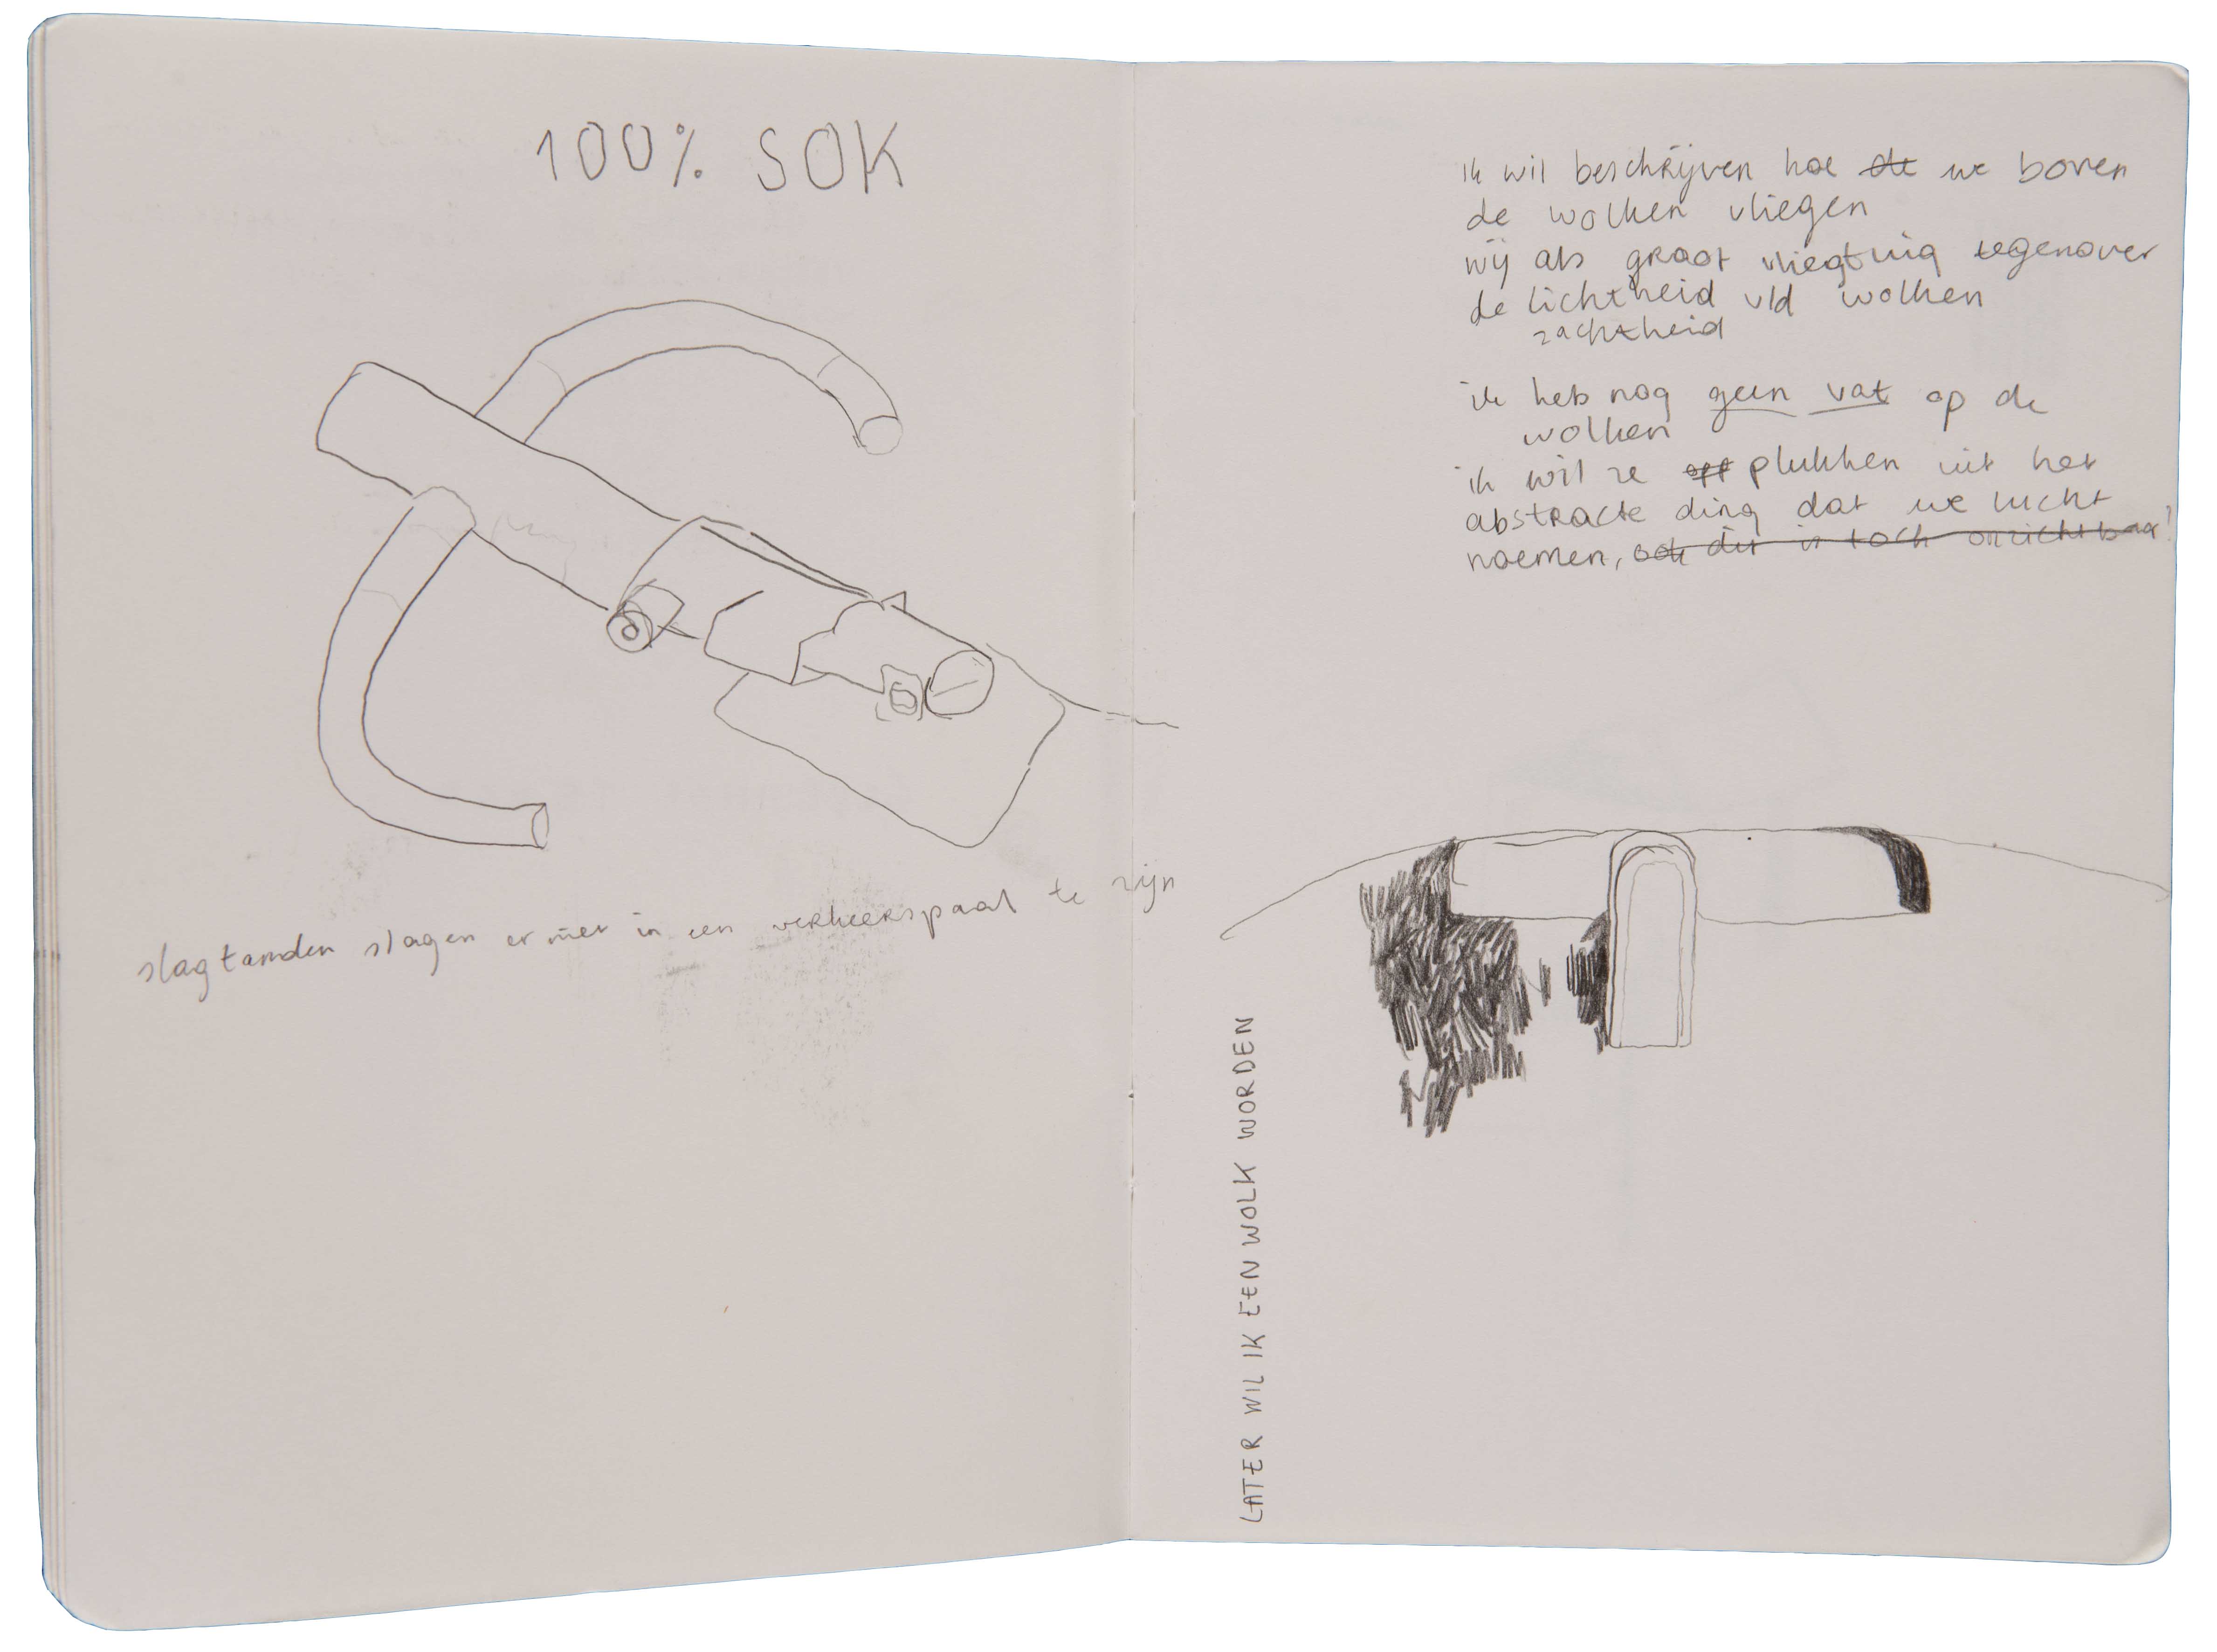 100% SOK
slagtanden slagen er niet in een verkeerspaal te zijn
ik wil beschrijven hoe de we boven
de wolken vliegen
wij als groot vliegtuig tegenover
de lichtheid v/d wolken
zachtheid
ik heb nog geen vat op de
wolken
ik wil ze plukken uit het
abstracte ding dat we lucht
noemen, ook dit is toch onzichtbaar?
LATER WIL IK EEN WOLK WORDEN